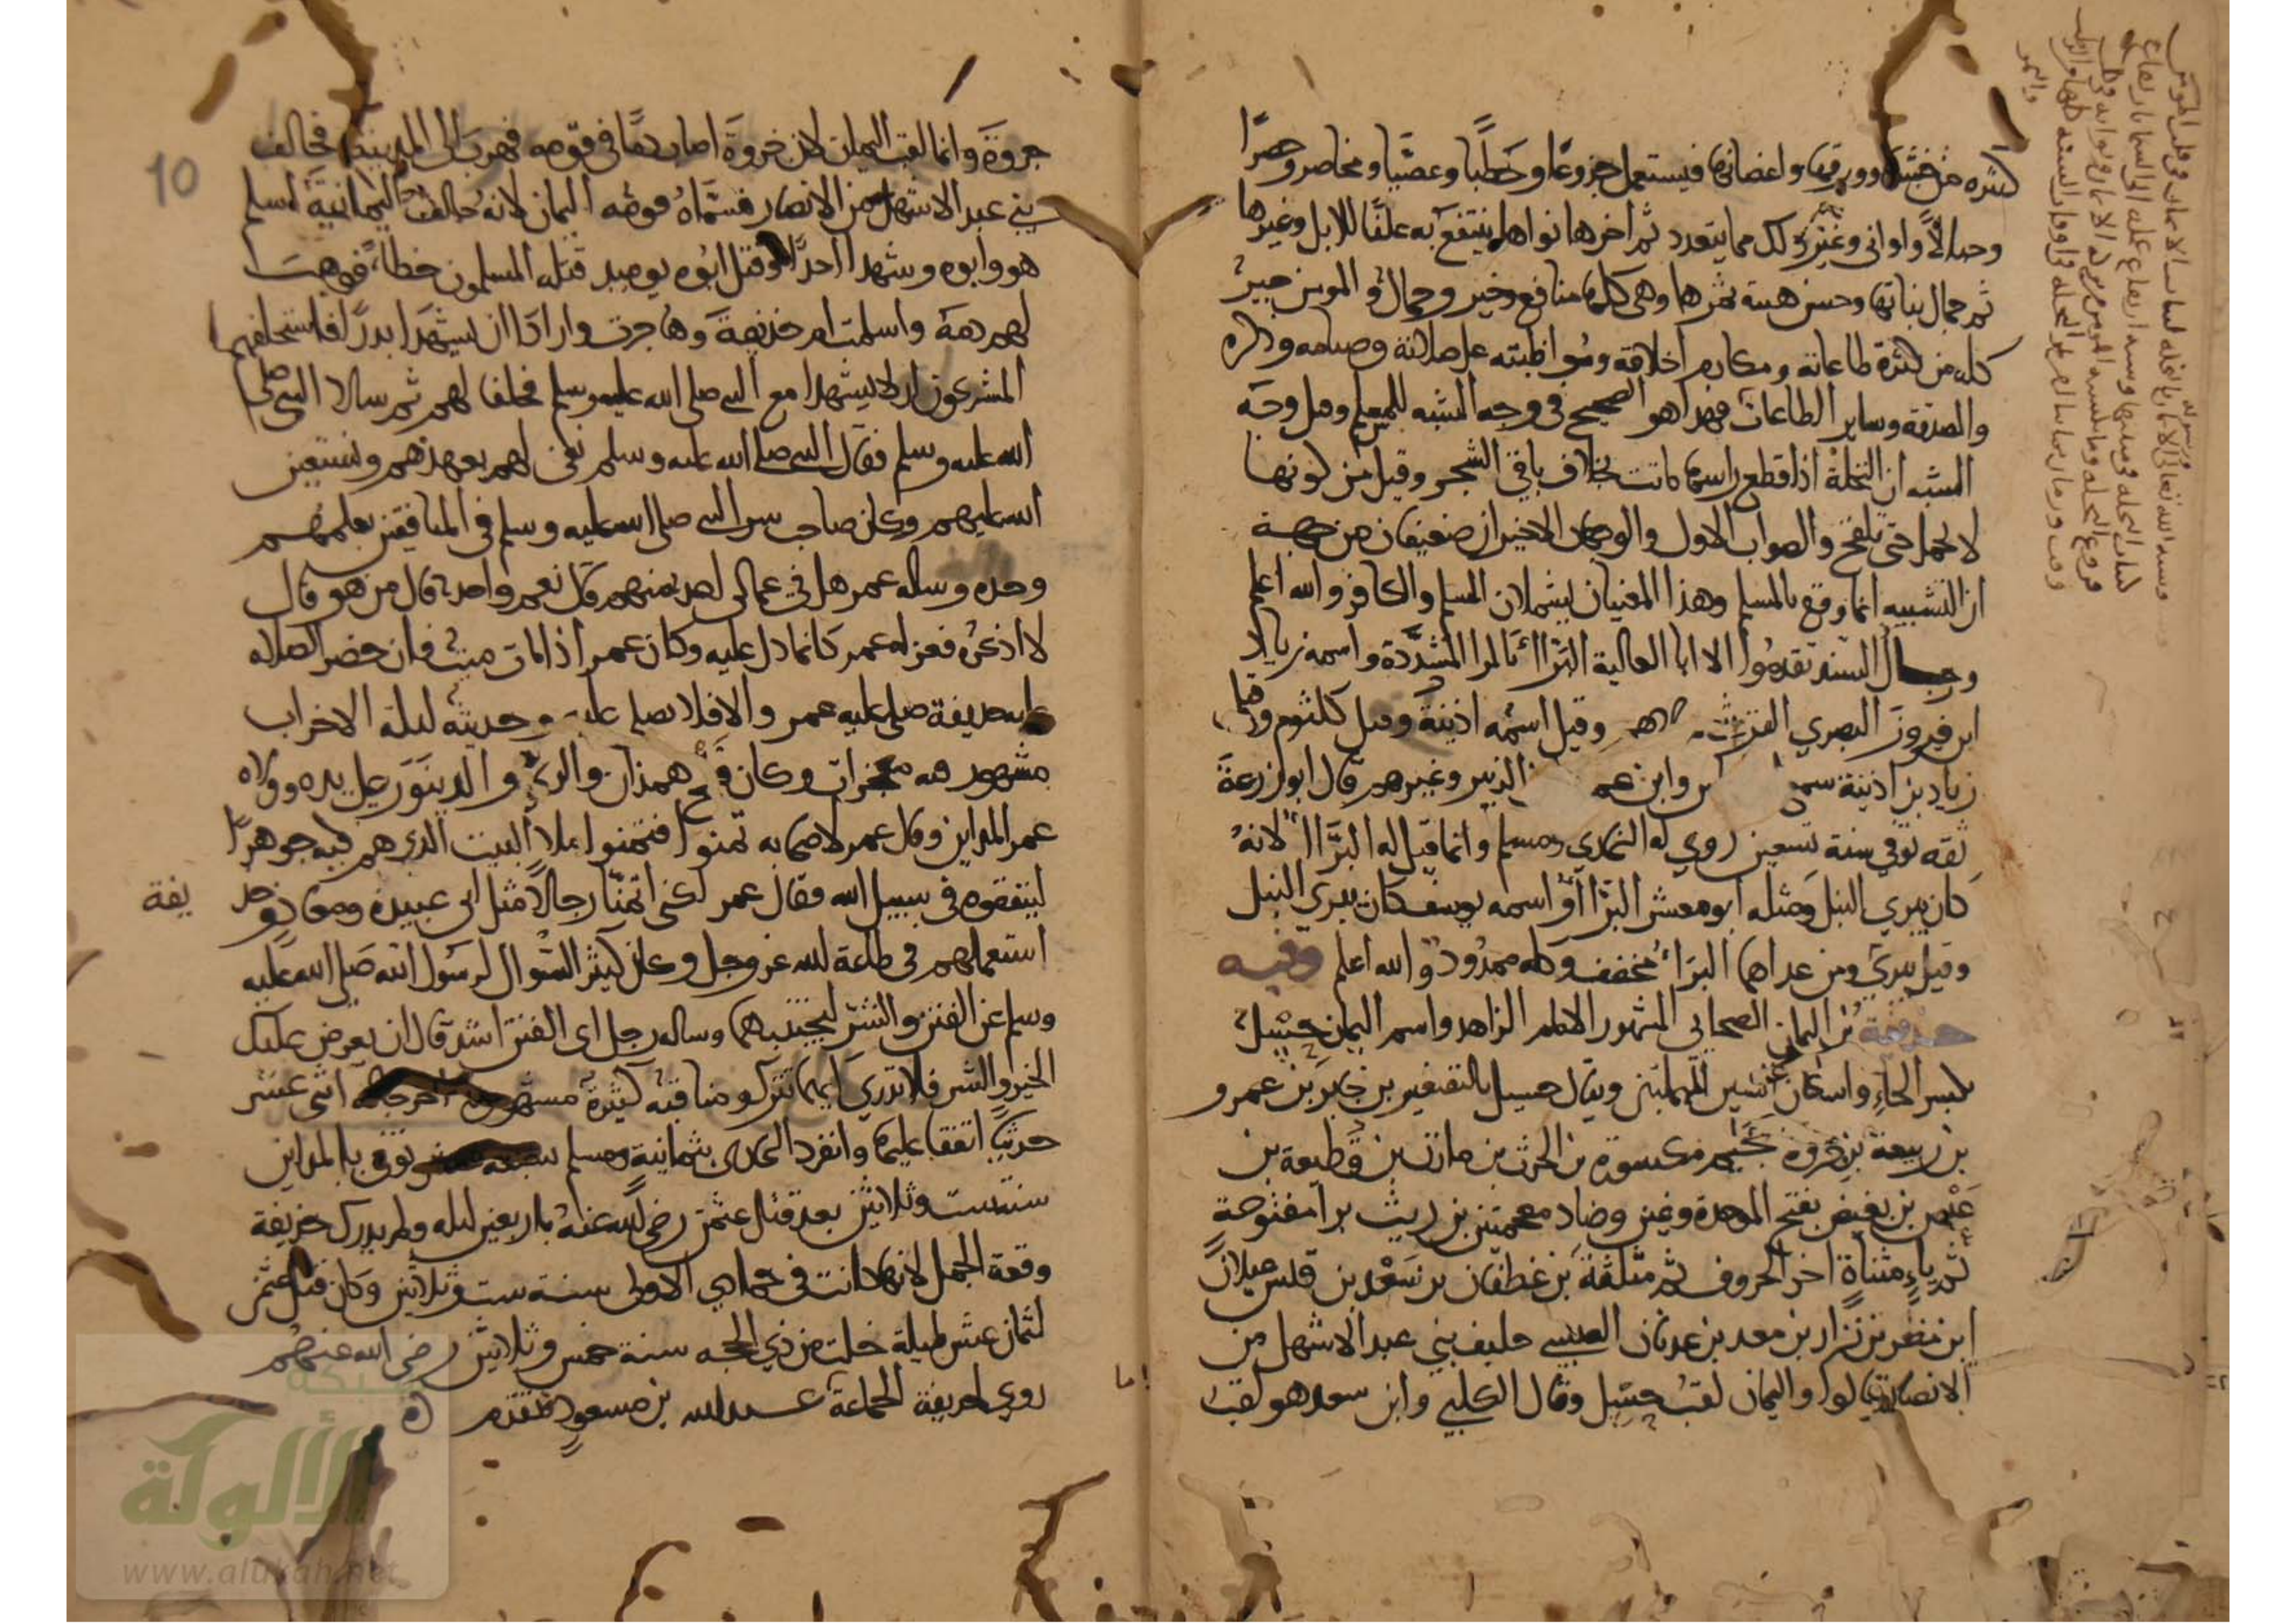 كثيرة من خشبها وورقها واغصانها فيستعمل جزوعا وحطبا وعصيا ومخاصر وحصرا
وحبالا واواني وغير ذلك مما يتعدد ثم اخرها نواها ينتفع به علفا للابل وغيرها
ثم جمال بناتها وحسن هيئة ثمرها وهي كلها منافع وخير وجمال والمومن خير
كله من كثرة طاعاته ومكارم اخلاقه ومواظبته على صلاته وصيامه وذكره
والصدقة وساير الطاعات فهذا هو الصحيح في وجه الشبه للمسلم وقيل وجه
الشبه ان النخلة اذا قطع راسها ماتت بخلاف باقي الشجر وقيل من كونها
لا تحمل حتى تلقح والصواب الاول والوجهان الاخيران ضعيفان من جهة
ان التشبيه انما وقع بالمسلم وهذا المعنيان يشملان المسلم والكافر والله اعلم
ورجال السند تقدموا الا ابا العالية البراا بالرا المشددة واسمه زياد
ابن فيروز البصري القرشي مولاهم وقيل اسمه اذينة وقيل كلثوم وقيل
زياد بن اذينة سمع وابن عمر الزبير وغيرهم قال ابو زرعة
ثقة توفي سنة تسعين روى له البخاري ومسلم وانما قيل له البراا لانه
كان يبري النبل ومثله ابو معشر البراا واسمه يوسف كان يبري النبل
وقيل يبرى ومن عداهما البراء مخفف وكله ممدود والله اعلم وفيه
حذيفة بن اليمان الصحابي المشهور الامام الزاهد واسم اليمان حسل
بكسر الحاء واسكان السين المهملتين ويقال حسيل بالتصغير بن جابر بن عمرو
بن ربيعة بن جروة بجيم مكسورة بن الحرث بن مازن بن قطيعة بن
عبس بن بغيض بفتح الموحدة وغين وضاد معجمتين بن ريث برا مفتوحة
ثم ياء مثناة اخر الحروف ثم مثلثة بن غطفان بن سعد بن قيس عيلان
ابن مضر بن نزار بن معد بن عدنان العبسي حليف بني عبد الاشهل من
الانصار قالوا واليمان لقب حسل وقال الكلبي وابن سعد هو لقب
10
جروة وانما لقب اليمان لان جروة اصاب دما في قومه فهرب الى المدينة فحالف
بني عبد الاشهل من الانصار فسماه قومه اليمان لانه حالف اليمانية اسلم
هو وابوه وشهدا احدا وقتل ابوه يوميذ قتله المسلمون خطا فوهب
لهم دمه واسلمت ام حذيفة وهاجرت وارادا ان يشهدا بدرا فاستحلفهما
المشركون ان لا يشهدا مع النبي صلى الله عليه وسلم فحلفا لهم ثم سالا النبي صلى
الله عليه وسلم فقال النبي صلى الله عليه وسلم نفي لهم بعهدهم ونستعين
الله عليهم وكان صاحب سر النبي صلى الله عليه وسلم في المنافقين يعلمهم
وحده وساله عمر هل في عمالي احد منهم قال نعم واحد قال من هو قال
لا اذكره فعزله عمر كانما دل عليه وكان عمر اذا مات ميت فان حضر الصلاة
عليه حذيفة صلى عليه عمر والا فلا يصلي عليه وحديثه ليلة الاحزاب
مشهور فيه معجزات وكان فتح همذان والري والدينور على يده وولاه
عمر المداين وقال عمر لاصحابه تمنوا فتمنوا ملا البيت الذي هم فيه جوهرا
لينفقوه في سبيل الله فقال عمر لكني اتمنا رجالا مثل ابي عبيدة ومعاذ وحذ
يفة
استعملهم في طاعة الله عز وجل وكان كثير السوال لرسول الله صلى الله عليه
وسلم عن الفتن والشر ليجتنبهما وساله رجل اي الفتن اشد قال ان يعرض عليك
الخير والشر فلا تدري ايهما تترك ومناقبه كثيرة مشهورة اثني عشر
حديثا اتفقا عليها وانفرد البخاري بثمانية ومسلم بسبعة عشر توفي بالمداين
سنة ست وثلاثين بعد قتل عثمن رضي الله عنه باربعين ليلة ولم يدرك حذيفة
وقعة الجمل لانها كانت في جمادي الاولى سنة ست وثلاثين وكان قتل عثمن
لثمان عشر ليلة خلت من ذي الحجه سنة خمس وثلاثين رضي الله عنهم
روى لحذيفة الجماعة عبد الله بن مسعود تقدم
اما
شبكة
الألوكة
www.alukah.net